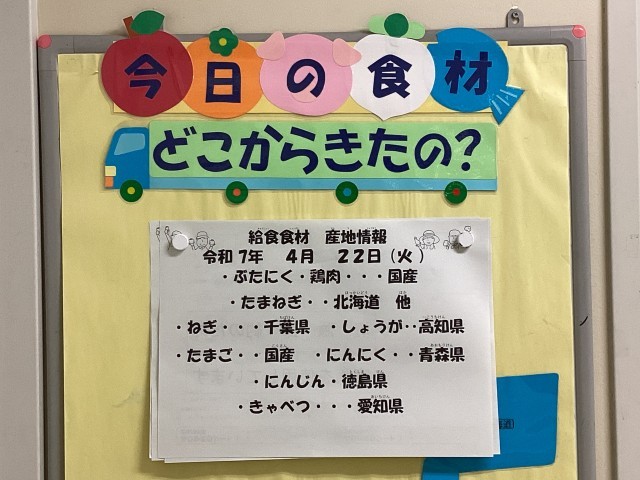 今日の食材
どこからきたの?
給食食材 産地情報
令和 7年 4月 22日(火)
・ぶたにく・鶏肉・・・国産
・たまねぎ・・北海道 他
・ねぎ・・・千葉県 ・しょうが・・高知県
・たまご・・国産 ・にんにく・・青森県
・にんじん・徳島県
・きゃべつ・・・愛知県